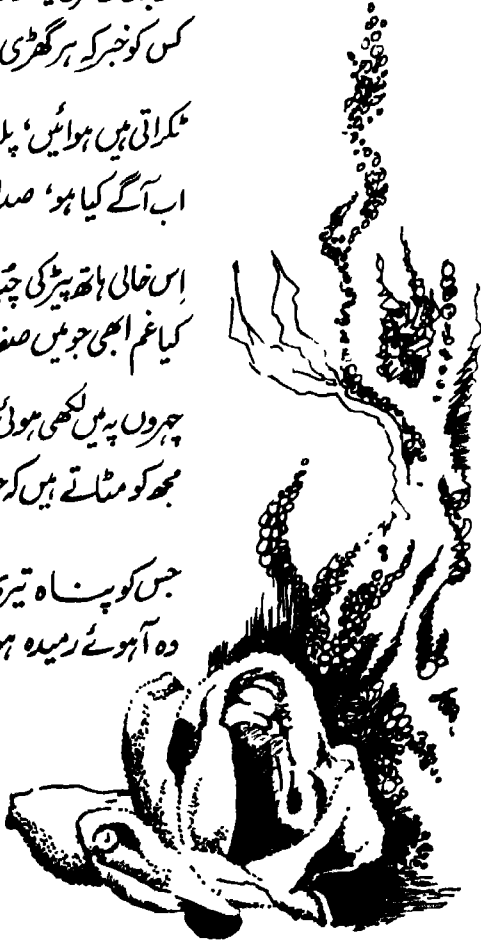 کس کو خبر کہ ہر گھڑی
ٹکراتی ہیں ہوائیں‘
اب آگے کیا ہو‘
اِس خالی ہاتھ پیڑ کی
کیا غم ابھی جو میں
چہروں پہ میں لکھی ہوئی
مجھ کو مٹاتے ہیں کہ
جس کو پناہ
وہ آہوئے رمیدہ